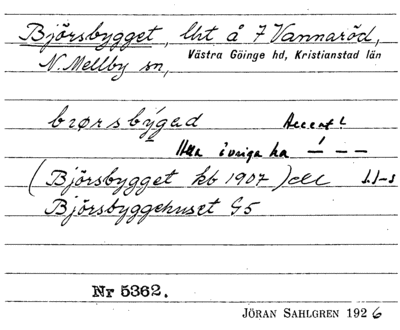 Björsbygget, lht å 7 Vannaröd,
N. Mellby sn, Västra Göinge hd, Kristianstad län
bıørsbýgəd Accent!
Alla övriga ha
(Björsbygget kb 1907)
Björsbyggehuset G5
Nr 5362.
JÖRAN SAHLGREN 1926